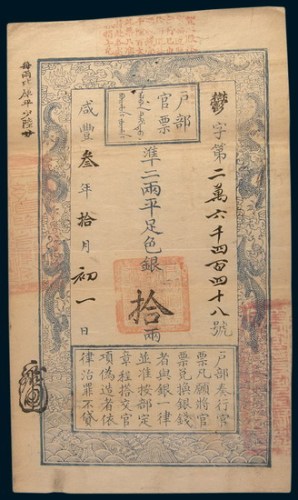 戶部
官票
鬱字第二萬六千四百四十八號
準二兩平足色銀拾兩
咸豐叁年拾月初一日
每兩比庫平少陸分
戶部奏行官
票凡願將官
票兌換銀錢
者與銀一律
並准按部定
章程搭交官
項偽造者依
律治罪不貸